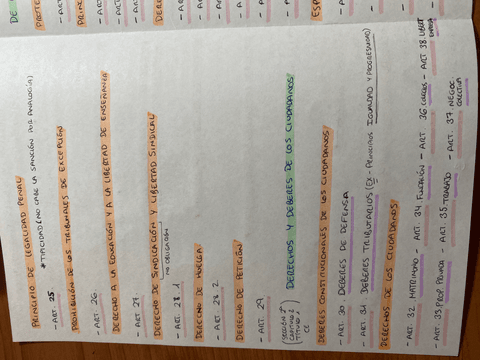 PRINCIPIO DE LEGALIDAD PENAL
- ART. 25 * TIPICIDAD (NO CABE LA SANCIÓN POR ANALOGÍA)
PROHIBICIÓN DE LOS TRIBUNALES DE EXCEPCIÓN
- ART. 26
DERECHO A LA EDUCACIÓN Y A LA LIBERTAD DE ENSEÑANZA
- ART. 27
DERECHO DE SINDICACIÓN Y LIBERTAD SINDICAL
- ART. 28.1 NO OBLIGACIÓN
DERECHO DE HUELGA
- ART. 28.2
DERECHO DE PETICIÓN
- ART. 29
SECCIÓN 2ª
CAPÍTULO 2
TÍTULO 1
CE
DERECHOS Y DEBERES DE LOS CIUDADANOS
DEBERES CONSTITUCIONALES DE LOS CIUDADANOS
- ART. 30 DEBERES DE DEFENSA
- ART. 31 DEBERES TRIBUTARIOS (EX - PRINCIPIOS IGUALDAD Y PROGRESIVIDAD)
DERECHOS DE LOS CIUDADANOS
- ART. 32 MATRIMONIO - ART. 34 FUNDACIÓN - ART. 36 - ART. 38 LIBERT
- ART. 33 PROP. PRIVADA - ART. 35 TRABAJO - ART. 37 NEGOC.
COLECTIVA